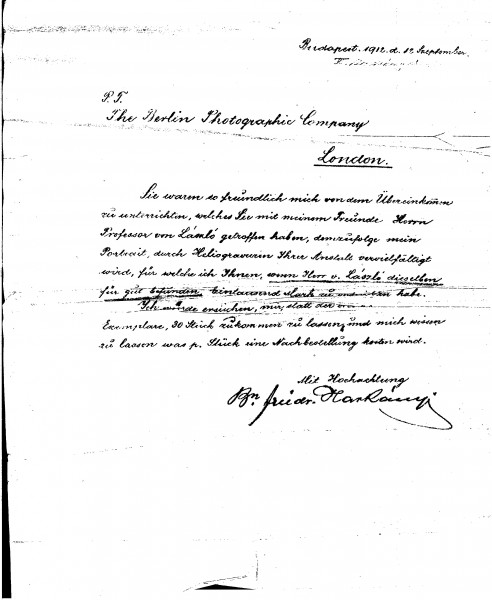 Budapest. 1912. d. 12. September.
P. T.
The Berlin Photographic Company
London.
Sie waren so freundlich mich von dem Übereinkom̅en
zu unterrichten, welches Sie mit meinem Freunde Herrn
Professor von László getroffen haben, demzufolge mein
Portrait, durch Heliogravuren Ihrer Anstalt vervielfältigt
wird, für welche ich Ihnen, wenn Herr v. László dieselben
für gut befunden Eintausend Mark zu habe.
Ich würde ersuchen, mir, statt der
Exemplare, 30 Stück zukommen zu lassen, und mich wissen
zu lassen was p. Stück eine Nachbestellung kosten wird.
Mit Hochachtung
Bn. Friedr. Harkányi